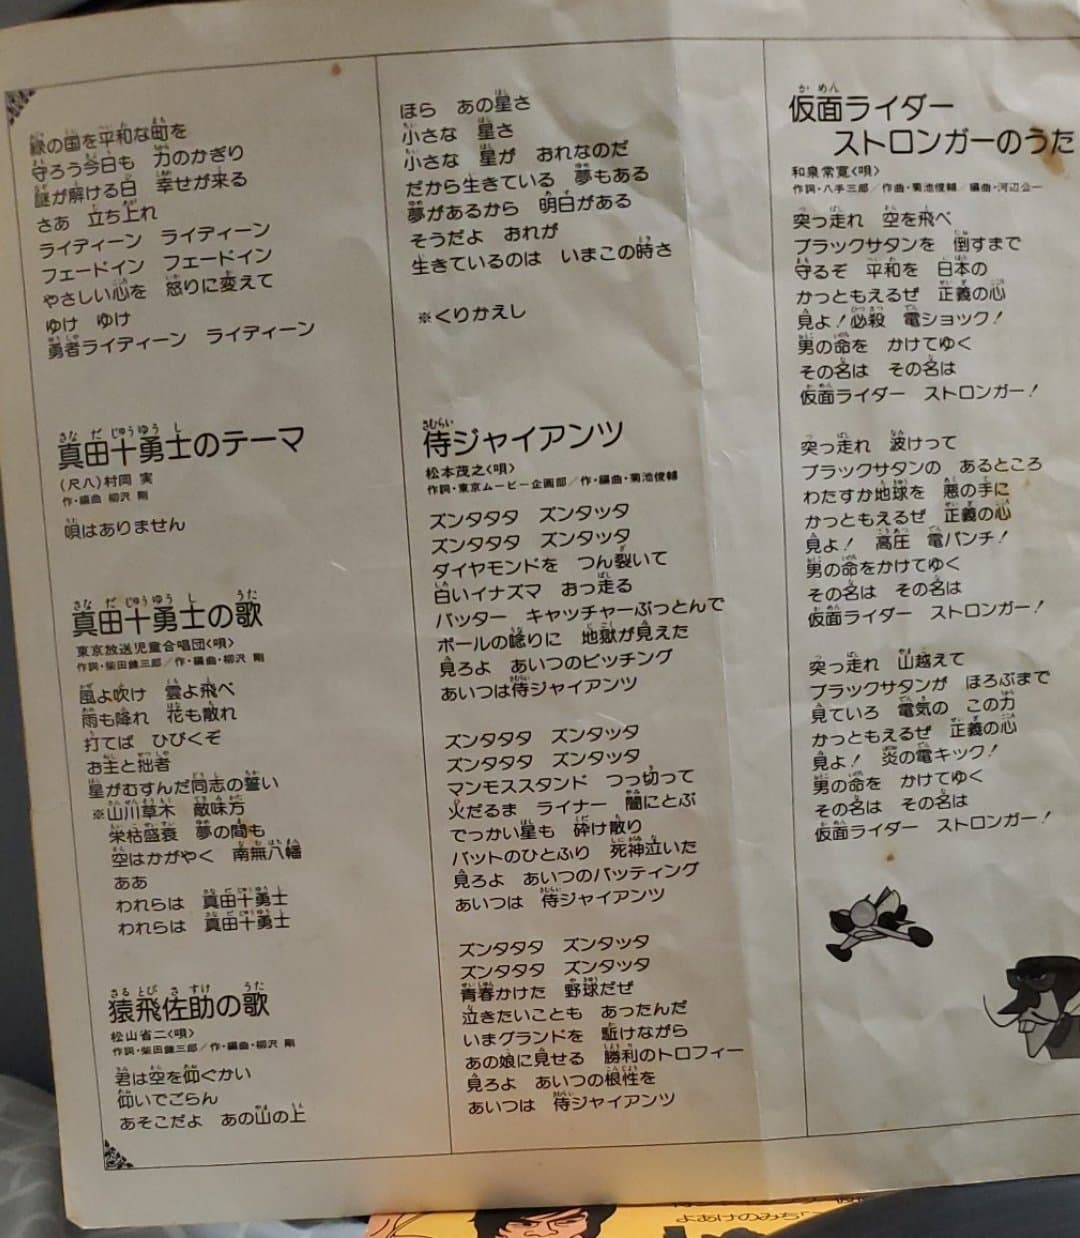 緑の国を平和な町を
守ろう今日も　力のかぎり
謎が解ける日　幸せが来る
さあ　立ち上れ
ライディーン　ライディーン
フェードイン　フェードイン
やさしい心を　怒りに変えて
ゆけ　ゆけ
勇者ライディーン　ライディーン
真田十勇士のテーマ
(尺八)村岡 実
作・編曲 柳沢 剛
唄はありません
真田十勇士の歌
東京放送児童合唱団<唄>
作詞・柴田錬三郎／作・編曲・柳沢 剛
風よ吹け　雲よ飛べ
雨も降れ　花も散れ
打てば　ひびくぞ
お主と拙者
星がむすんだ同志の誓い
※山川草木　敵味方
栄枯盛衰　夢の間も
空はかがやく　南無八幡
ああ
われらは　真田十勇士
われらは　真田十勇士
猿飛佐助の歌
松山省二<唄>
作詞・柴田錬三郎／作・編曲・柳沢 剛
君は空を仰ぐかい
仰いでごらん
あそこだよ　あの山の上
ほら　あの星さ
小さな　星さ
小さな　星が　おれなのだ
だから生きている　夢もある
夢があるから　明日がある
そうだよ　おれが
生きているのは　いまこの時さ
※くりかえし
侍ジャイアンツ
松本茂之<唄>
作詞・東京ムービー企画部／作・編曲・菊池俊輔
ズンタタタ　ズンタッタ
ズンタタタ　ズンタッタ
ダイヤモンドを　つん裂いて
白いイナズマ　おっ走る
バッター　キャッチャーぶっとんで
ボールの唸りに　地獄が見えた
見ろよ　あいつのピッチング
あいつは侍ジャイアンツ
ズンタタタ　ズンタッタ
ズンタタタ　ズンタッタ
マンモススタンド　つっ切って
火だるま　ライナー　闇にとぶ
でっかい星も　砕け散り
バットのひとふり　死神泣いた
見ろよ　あいつのバッティング
あいつは　侍ジャイアンツ
ズンタタタ　ズンタッタ
ズンタタタ　ズンタッタ
青春かけた　野球だぜ
泣きたいことも　あったんだ
いまグランドを　駈けながら
あの娘に見せる　勝利のトロフィー
見ろよ　あいつの根性を
あいつは　侍ジャイアンツ
仮面ライダー
ストロンガーのうた
和泉常寛<唄>
作詞・八手三郎／作曲・菊池俊輔／編曲・河辺公一
突っ走れ　空を飛べ
ブラックサタンを　倒すまで
守るぞ　平和を　日本の
かっともえるぜ　正義の心
見よ！必殺　電ショック！
男の命を　かけてゆく
その名は　その名は
仮面ライダー　ストロンガー！
突っ走れ　波けって
ブラックサタンの　あるところ
わたすか地球を　悪の手に
かっともえるぜ　正義の心
見よ！　高圧　電パンチ！
男の命をかけてゆく
その名は　その名は
仮面ライダー　ストロンガー！
突っ走れ　山越えて
ブラックサタンが　ほろぶまで
見ていろ　電気の　この力
かっともえるぜ　正義の心
見よ！　炎の電キック！
男の命を　かけてゆく
その名は　その名は
仮面ライダー　ストロンガー！
よあけのみち